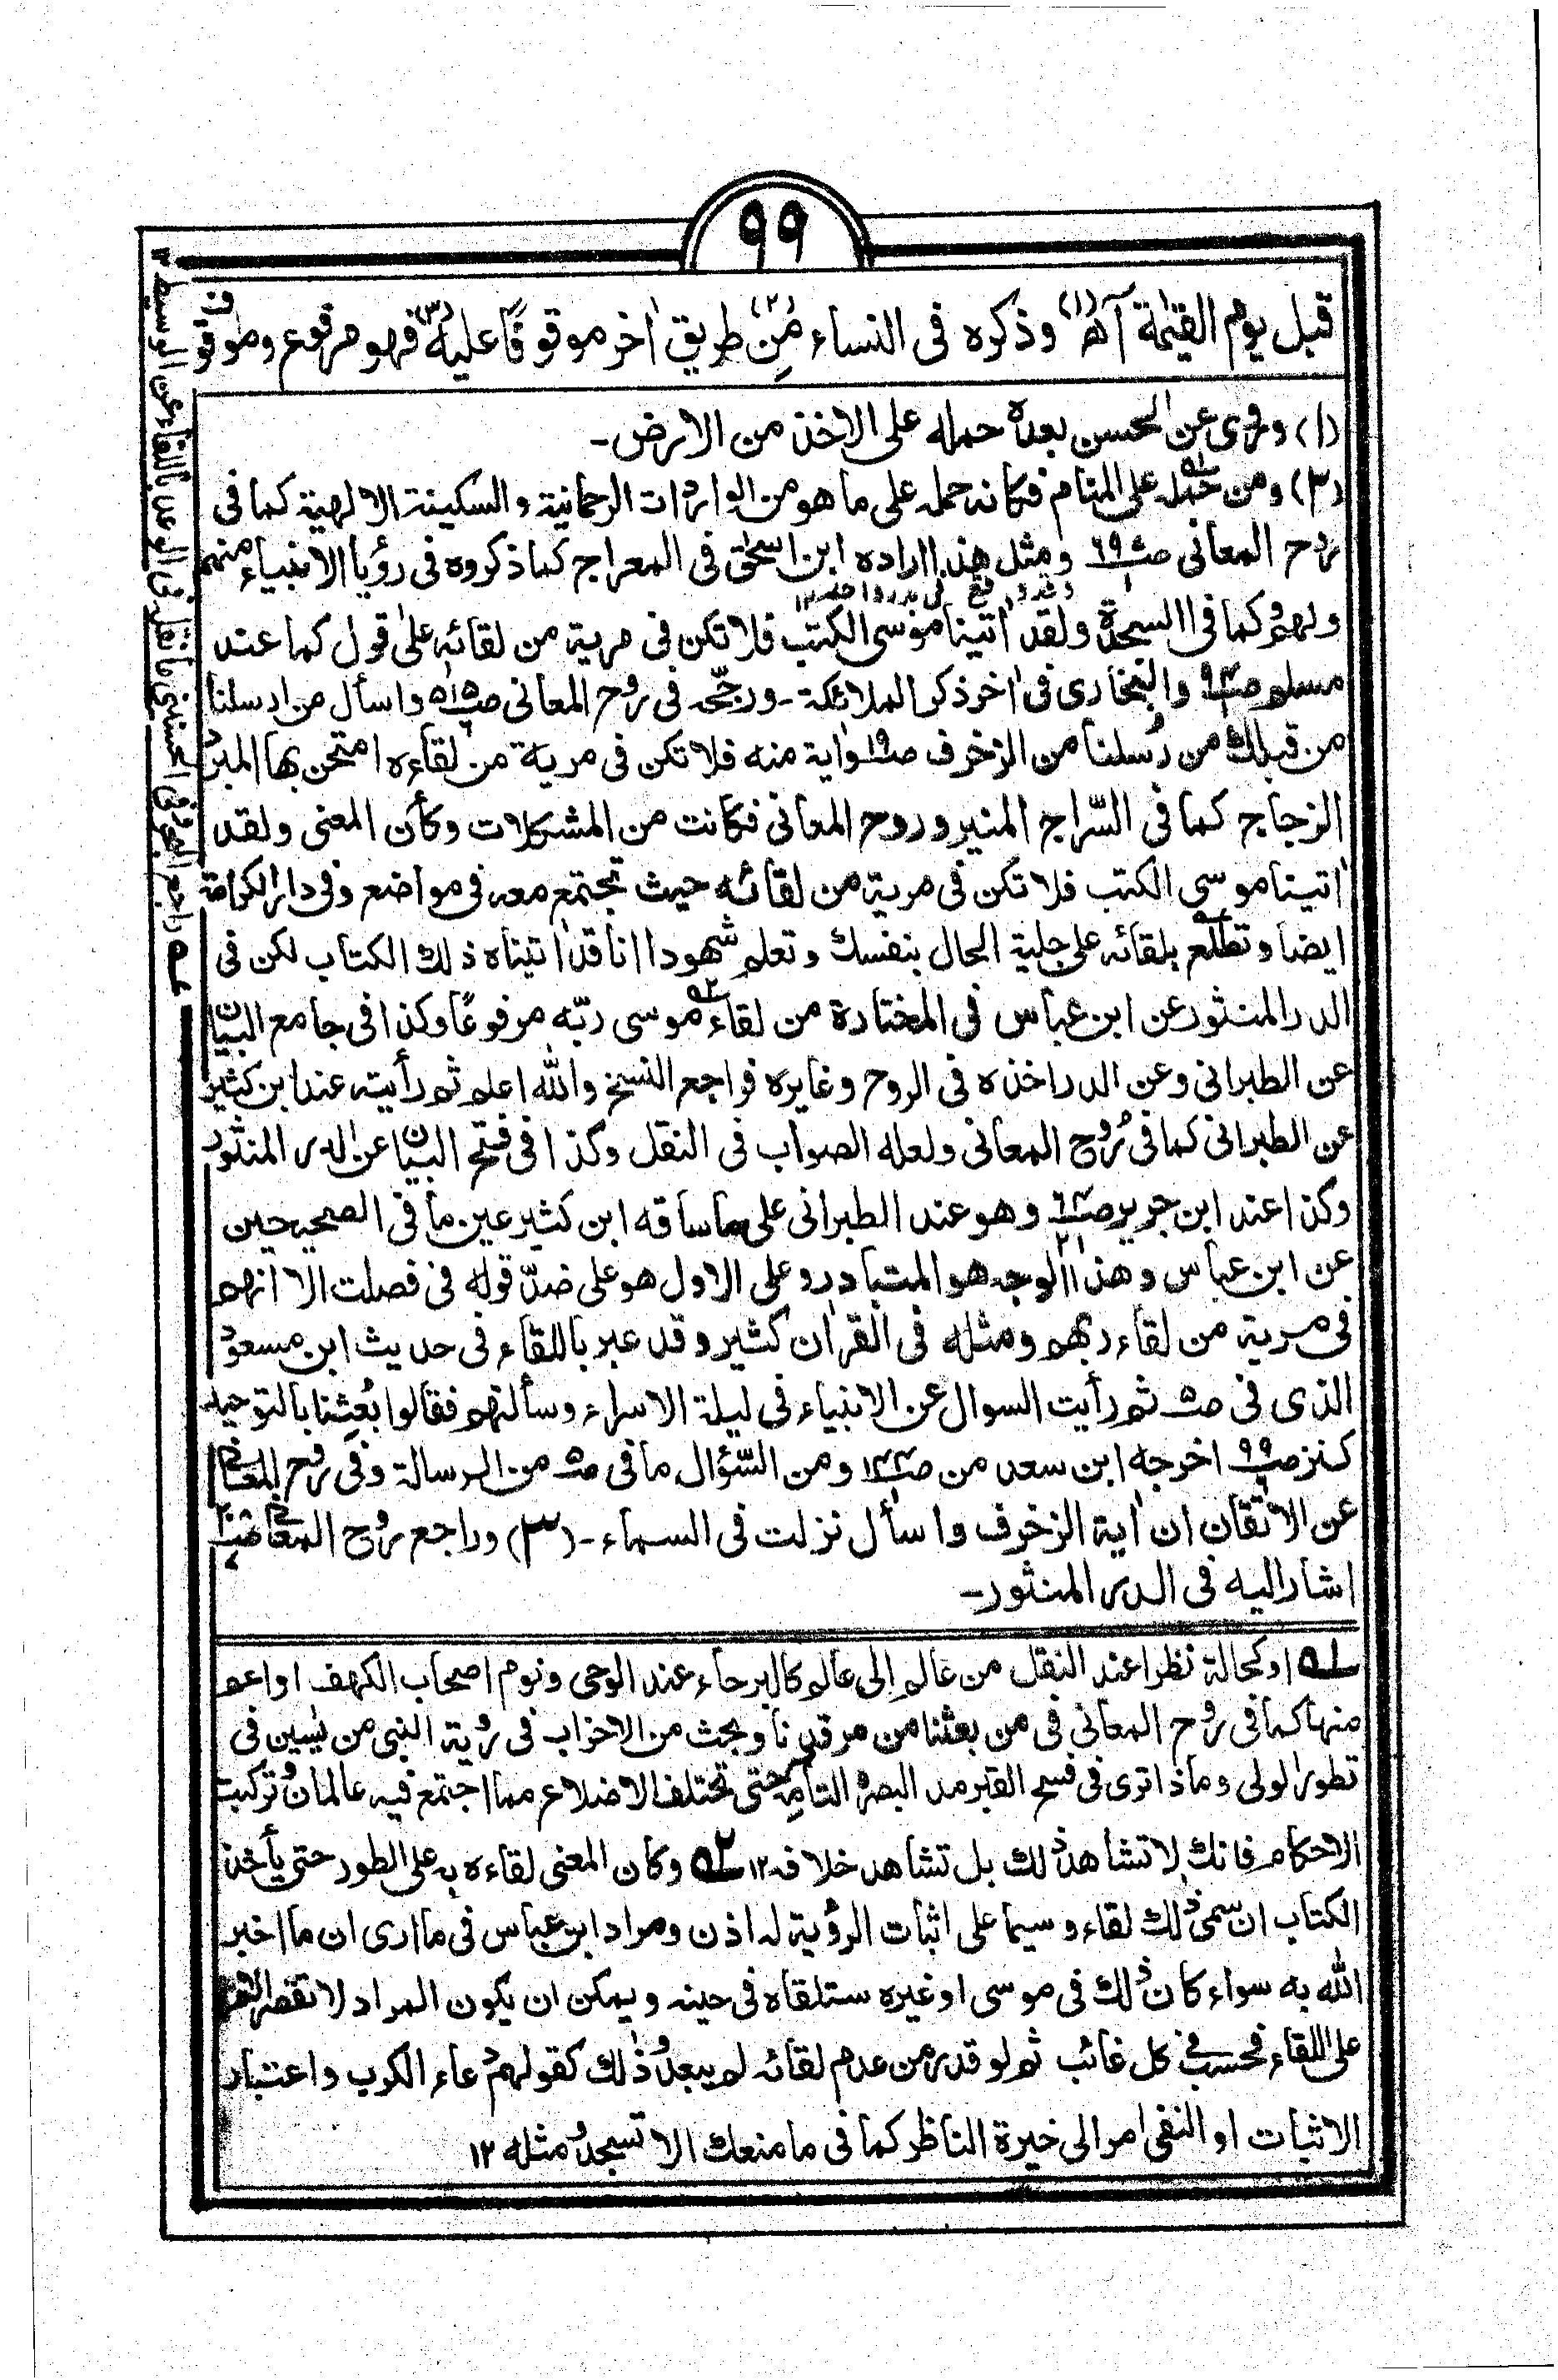 ٩٩
قبل يوم القيٰمة آھ (١) وذكره فى النساء (٢) من طريق اٰخر موقوفًا عليه (٣) فهو مرفوع وموقوف
(١) وروى عن الحسن بعده حمله على الاخذ من الارض۔
(٢) ومن حمله على المنام فكانه حمله على ما هو من الواردات الرحمانية والسكينة الالهية كما فى
روح المعانى ومثل هذا اراده ابن اسحٰق فى المعراج كما ذكروه فى رؤيا الانبياء منهم
ولهم كما فى السجدة ولقد اٰتينا موسى الكتٰب فلا تكن فى مرية من لقائه علىٰ قول كما عند
مسلم ص٩٤ والبخارى فى اٰخر ذكر الملائكة۔ ورجّحه فى روح المعانى واسأل من ارسلنا
من قبلك من رُسلنا من الزخرف واية منه فلا تكن فى مرية من لقاءه امتحن بها المبرد
الزجاج كما فى السّراج المنير وروح المعانى فكانت من المشكلات وكأن المعنى ولقد
اٰتينا موسى الكتب فلا تكن فى مرية من لقائه حيث تجتمع معه فى مواضع وفى دار الكرامة
ايضا وتطلع بلقائه على جلية الحال بنفسك وتعلم شهودا انا قد اٰتيناه ذلك الكتاب لكن فى
الدر المنثور عن ابن عباس فى المختارة من لقاء موسى ربّه مرفوعًا وكذا فى جامع البيان
عن الطبرانى وعن الدر اخذه فى الروح وغايره فراجع النسخ والله اعلم ثم رأيته عند ابن كثير
عن الطبرانى كما فى روح المعانى ولعله الصواب فى النقل وكذا فى فتح البيان عن الدر المنثور
وكذا عند ابن جرير وهو عند الطبرانى على ما ساقه ابن كثير عين ما فى الصحيحين
عن ابن عباس وهذا الوجه هو المتبادر وعلى الاول هو على ضدّ قوله فى فصلت الا انهم
فى مرية من لقاء ربهم ومثله فى القراٰن كثير وقد عبر باللقاء فى حديث ابن مسعود
الذى فى ص٥ ثم رأيت السوال عن الانبياء فى ليلة الاسراء وسألتهم فقالوا بُعِثنا بالتوحيد
كنز اخرجه ابن سعد من ومن السّؤال ما فى ص٥ من الرسالة وفى روح المعانى
عن الاتقان ان اٰية الزخرف واسأل نزلت فى السماء۔ (٣) وراجع روح المعانى
اشار اليه فى الدر المنثور۔
١ه او كحالة نظرا عند النقل من عالم الى عالم كالبرحاء عند الوحى ونوم اصحاب الكهف او اعم
منها كما فى روح المعانى فى من بعثنا من مرقدنا وبحث من الاحزاب فى رؤية النبى من يٰسين فى
تطور الولى وماذا ترى فى فسح القبر مد البصر والتأمه حتى تختلف الاضلاع مما اجتمع فيه عالمان وتركبت
الاحكام فانك لا تشاهد ذلك بل تشاهد خلافه ١٢ ٢ه وكان المعنى لقاءه به على الطور حتى يأخذ
الكتاب ان سمى ذلك لقاء وسيما على اثبات الرؤية له اذن ومراد ابن عباس فى ما ارى ان ما اخبر
الله به سواء كان ذلك فى موسى او غيره ستلقاه فى حينه ويمكن ان يكون المراد لا تقصر
على اللقاء فحسب فى كل غائب ثم لو قدر من عدم لقائه لم يبعد وذلك كقولهم دعاء الكرب واعتبار
الاثبات او النفى امر الى خيرة الناظر كما فى ما منعك الا تسجد ومثله ١٢